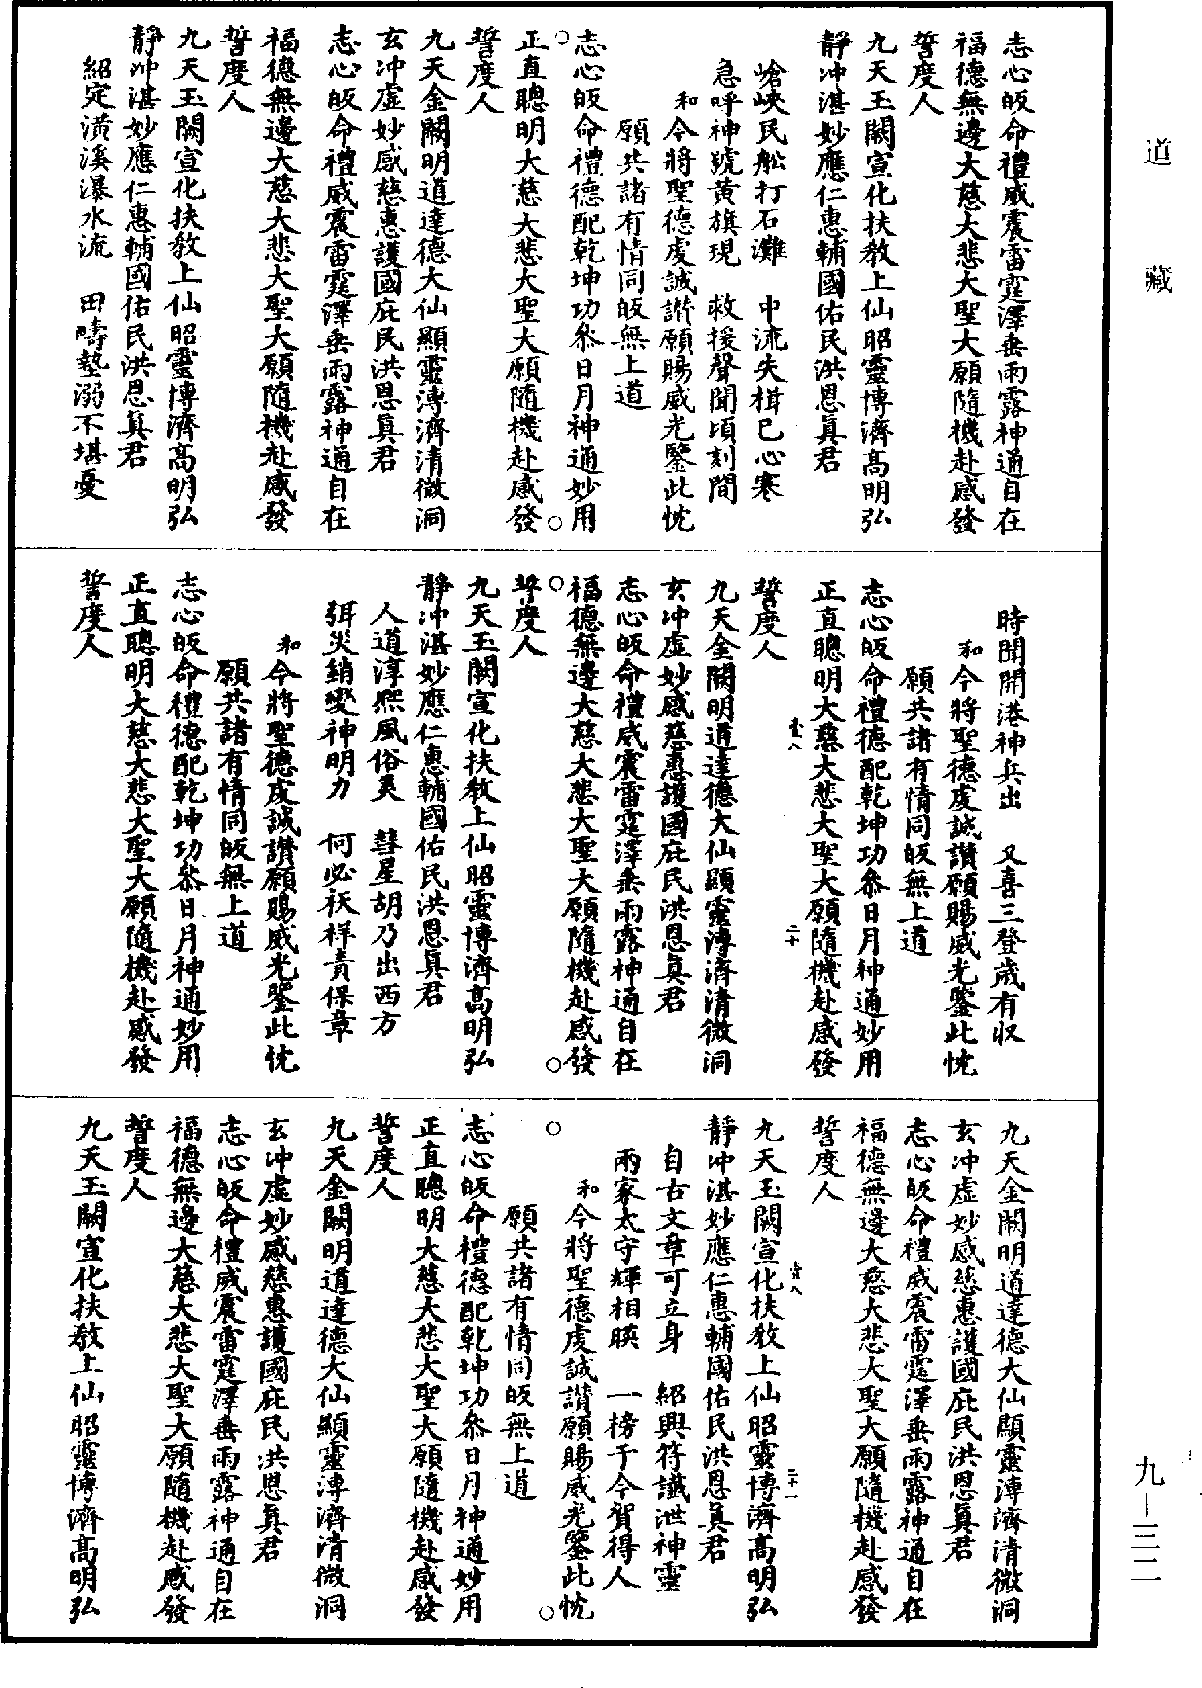 道藏
志心皈命禮威震雷霆澤垂雨露神通自在
福德無邊大慈大悲大聖大願隨機赴感發
誓度人
九天玉闕宣化扶教上仙昭靈博濟高明弘
靜冲湛妙應仁惠輔國佑民洪恩真君
峽民舩打石灘　中流失楫已心寒
急呼神號黄旗現　救援聲聞頃刻間
和今將聖德虔誠讃願賜威光鑒此忱
願共諸有情同皈無上道
志心皈命禮德配乾坤功叅日月神通妙用
正直聰明大慈大悲大聖大願隨機赴感發
誓度人
九天金闕明道達德大仙顯靈溥濟清微洞
玄冲虛妙感慈惠護國庇民洪恩真君
志心皈命禮威震雷霆澤垂雨露神通自在
福德無邊大慈大悲大聖大願隨機赴感發
誓度人
九天玉闕宣化扶教上仙昭靈博濟高明弘
靜冲湛妙應仁惠輔國佑民洪恩真君
紹定潢溪瀑水流　田疇墊溺不堪憂
時聞開港神兵出　又喜三登歲有収
和今將聖德虔誠讃願賜威光鑒此忱
願共諸有情同皈無上道
志心皈命禮德配乾坤功叅日月神通妙用
正直聰明大慈大悲大聖大願隨機赴感發
誓度人
二十
九天金闕明道達德大仙顯靈溥濟清微洞
玄冲虛妙感慈惠護國庇民洪恩真君
志心皈命禮威震雷霆澤垂雨露神通自在
福德無邊大慈大悲大聖大願隨機赴感發
誓度人
九天玉闕宣化扶教上仙昭靈博濟高明弘
靜冲湛妙應仁惠輔國佑民洪恩真君
人道淳熙風俗美　彗星胡乃出西方
弭災銷變神明力　何必祅祥責保章
和今將聖德虔誠讃願賜威光鑒此忱
願共諸有情同皈無上道
志心皈命禮德配乾坤功叅日月神通妙用
正直聰明大慈大悲大聖大願隨機赴感發
誓度人
九天金闕明道達德大仙顯靈溥濟清微洞
玄冲虛妙感慈惠護國庇民洪恩真君
志心皈命禮威震雷霆澤垂雨露神通自在
福德無邊大慈大悲大聖大願隨機赴感發
誓度人
二十一
九天玉闕宣化扶教上仙昭靈博濟高明弘
靜冲湛妙應仁惠輔國佑民洪恩真君
自古文章可立身　紹興符讖泄神靈
兩家太守輝相暎　一榜于今賀得人
和今將聖德虔誠讃願賜威光鑒此忱
願共諸有情同皈無上道
志心皈命禮德配乾坤功叅日月神通妙用
正直聰明大慈大悲大聖大願隨機赴感發
誓度人
九天金闕明道達德大仙顯靈溥濟清微洞
玄冲虛妙感慈惠護國庇民洪恩真君
志心皈命禮威震雷霆澤垂雨露神通自在
福德無邊大慈大悲大聖大願隨機赴感發
誓度人
九天玉闕宣化扶教上仙昭靈博濟高明弘
九—三二